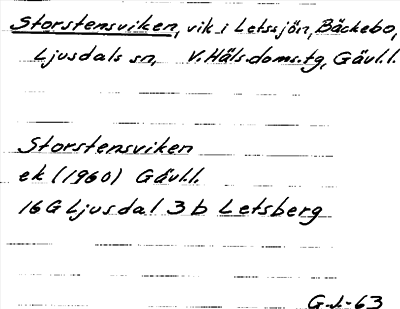 Storstensviken, vik i Letssjön, Bäckebo,
Ljusdals sn, V. Häls. doms. tg, Gävl.l.
Storstensviken
ek (1960) Gävl.l.
16G Ljusdal 3 b Letsberg
G.J.-63